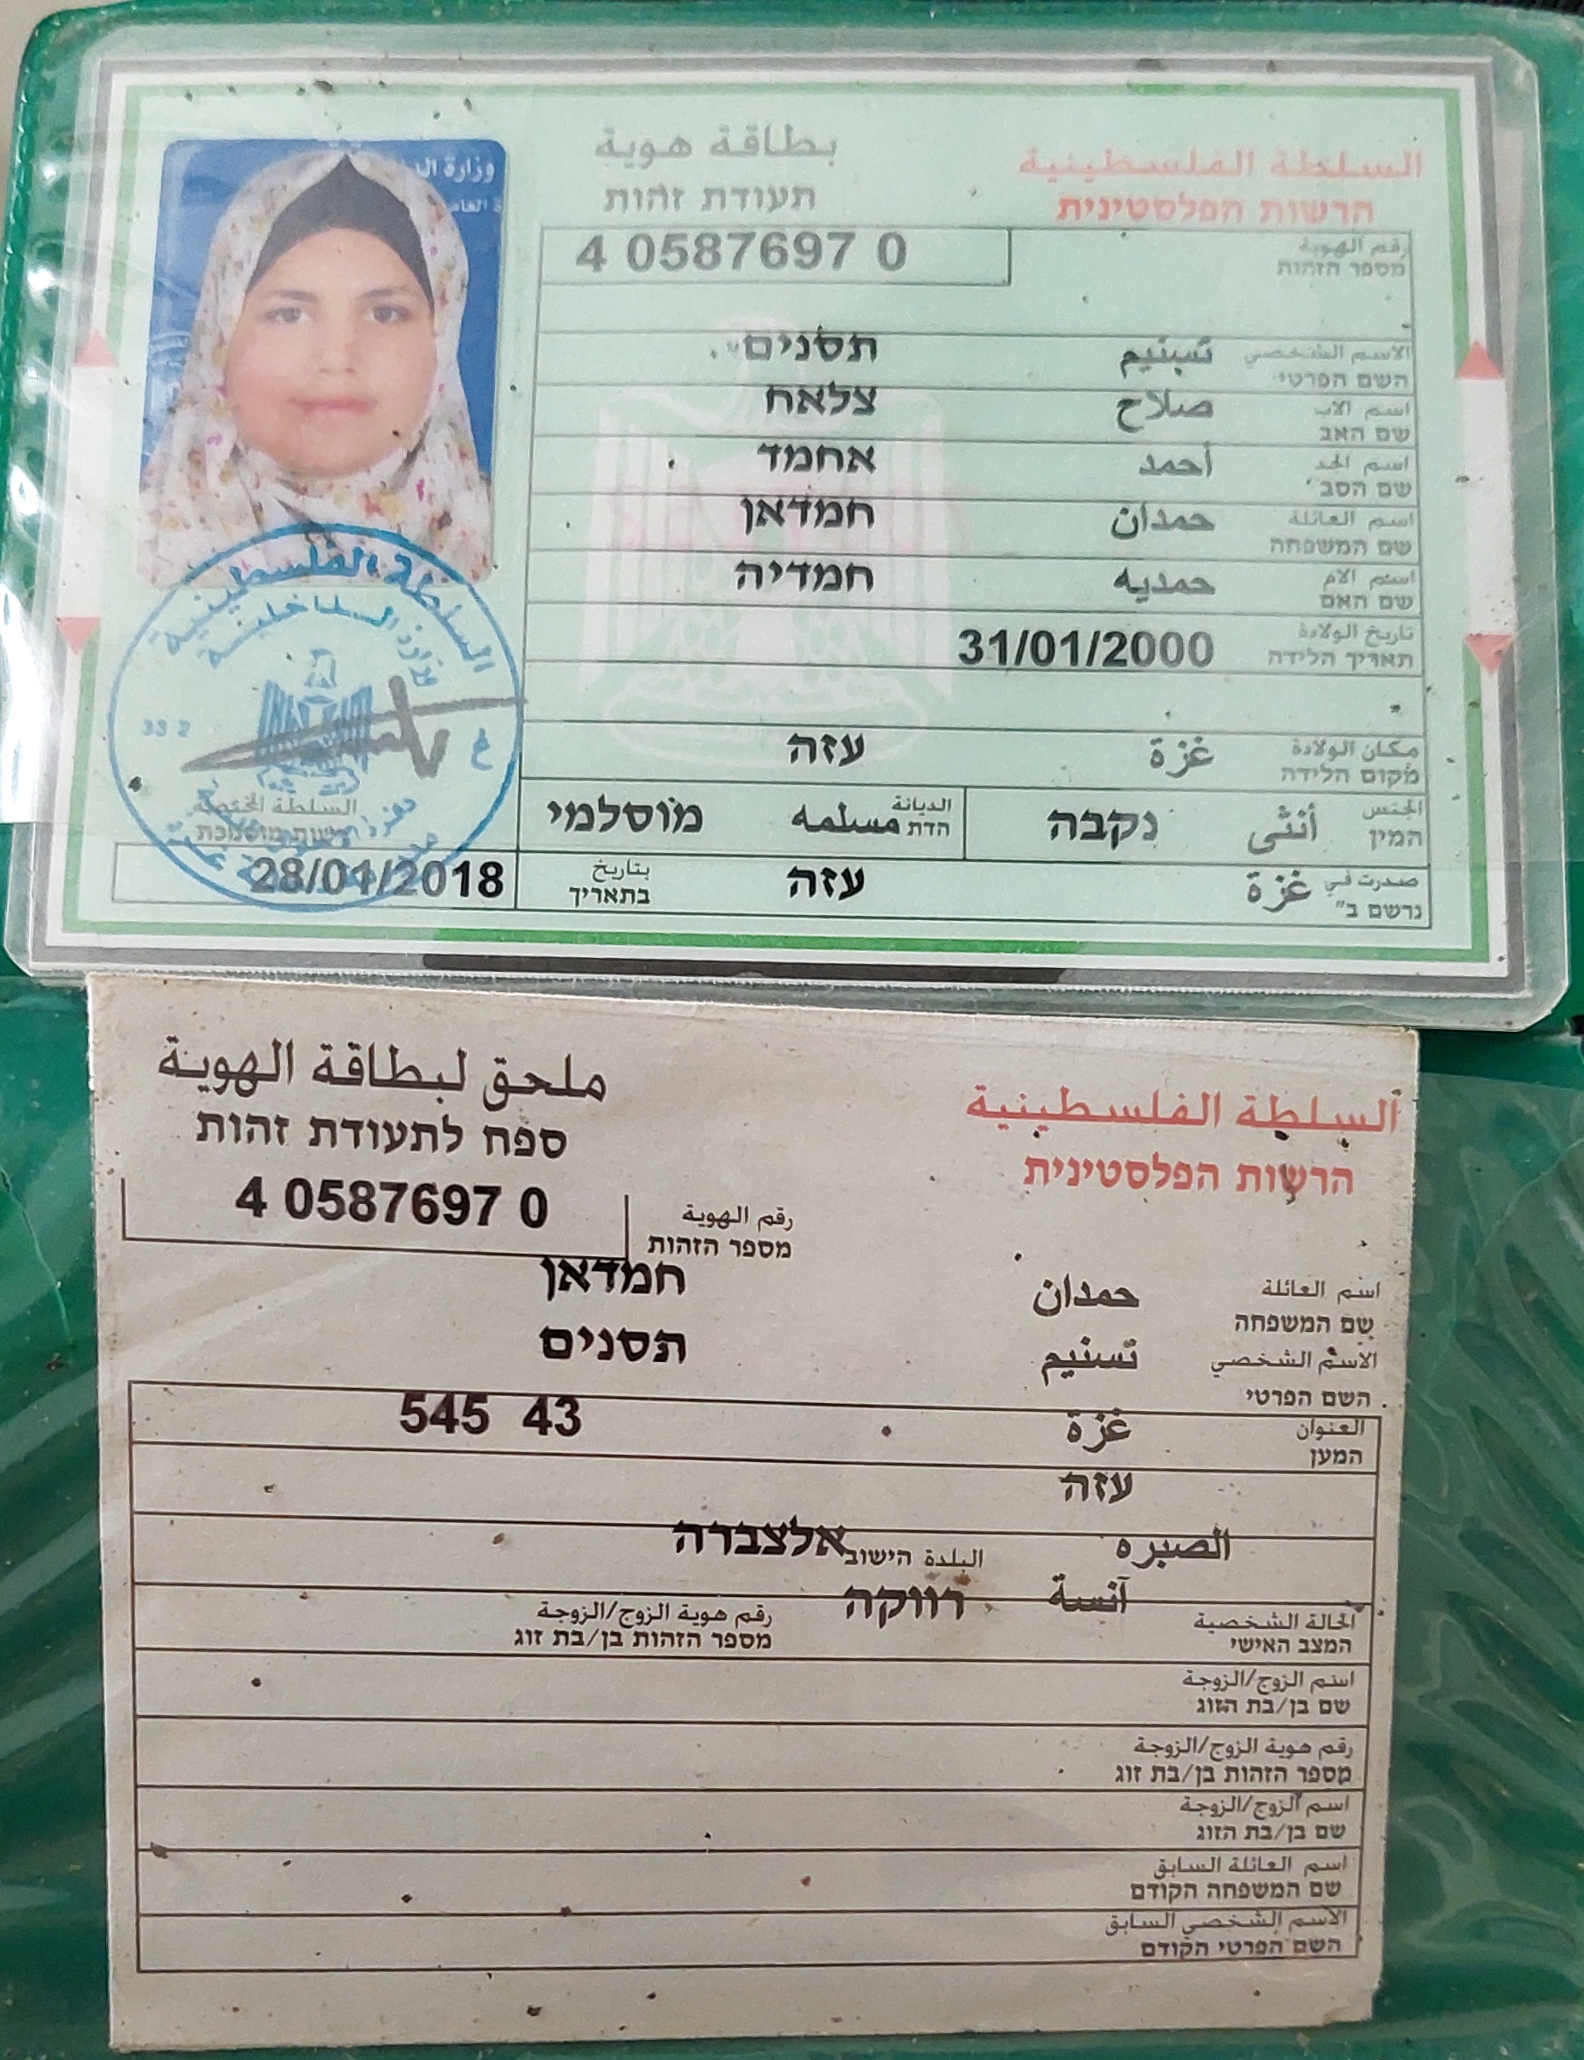 وزارة الد
ة العامة
بطاقة هوية
תעודת זהות
السلطة الفلسطينية
הרשות הפלסטינית
رقم الهوية
מספר הזהות
4 0587697 0
الاسم الشخصي تسنيم תסנים
השם הפרטי
اسم الاب صلاح צלאח
שם האב
اسم الجد أحمد אחמד
שם הסב
اسم العائلة حمدان חמדאן
שם המשפחה
اسم الام حمديه חמדיה
שם האם
تاريخ الولادة 31/01/2000
תאריך הלידה
مكان الولادة غزة עזה
מקום הלידה
الجنس أنثى נקבה الديانة مسلمه מוסלמי
המין הדת
صدرت في غزة עזה بتاريخ 28/01/2018
נרשם ב" בתאריך
السلطة الفلسطينية
وزارة الداخلية
332
السلطة المختصة
ملحق لبطاقة الهوية
ספח לתעודת זהות
السلطة الفلسطينية
הרשות הפלסטינית
رقم الهوية 4 0587697 0
מספר הזהות
اسم العائلة حمدان חמדאן
שם המשפחה
الاسم الشخصي تسنيم תסנים
השם הפרטי
العنوان غزة 43 545
המען
עזה
الصبره البلدة הישוב אלצברה
الحالة الشخصية آنسة רווקה رقم هوية الزوج/الزوجة
המצב האישי מספר הזהות בן/בת זוג
اسم الزوج/الزوجة
שם בן/בת הזוג
رقم هوية الزوج/الزوجة
מספר הזהות בן/בת זוג
اسم الزوج/الزوجة
שם בן/בת הזוג
اسم العائلة السابق
שם המשפחה הקודם
الاسم الشخصي السابق
השם הפרטי הקודם